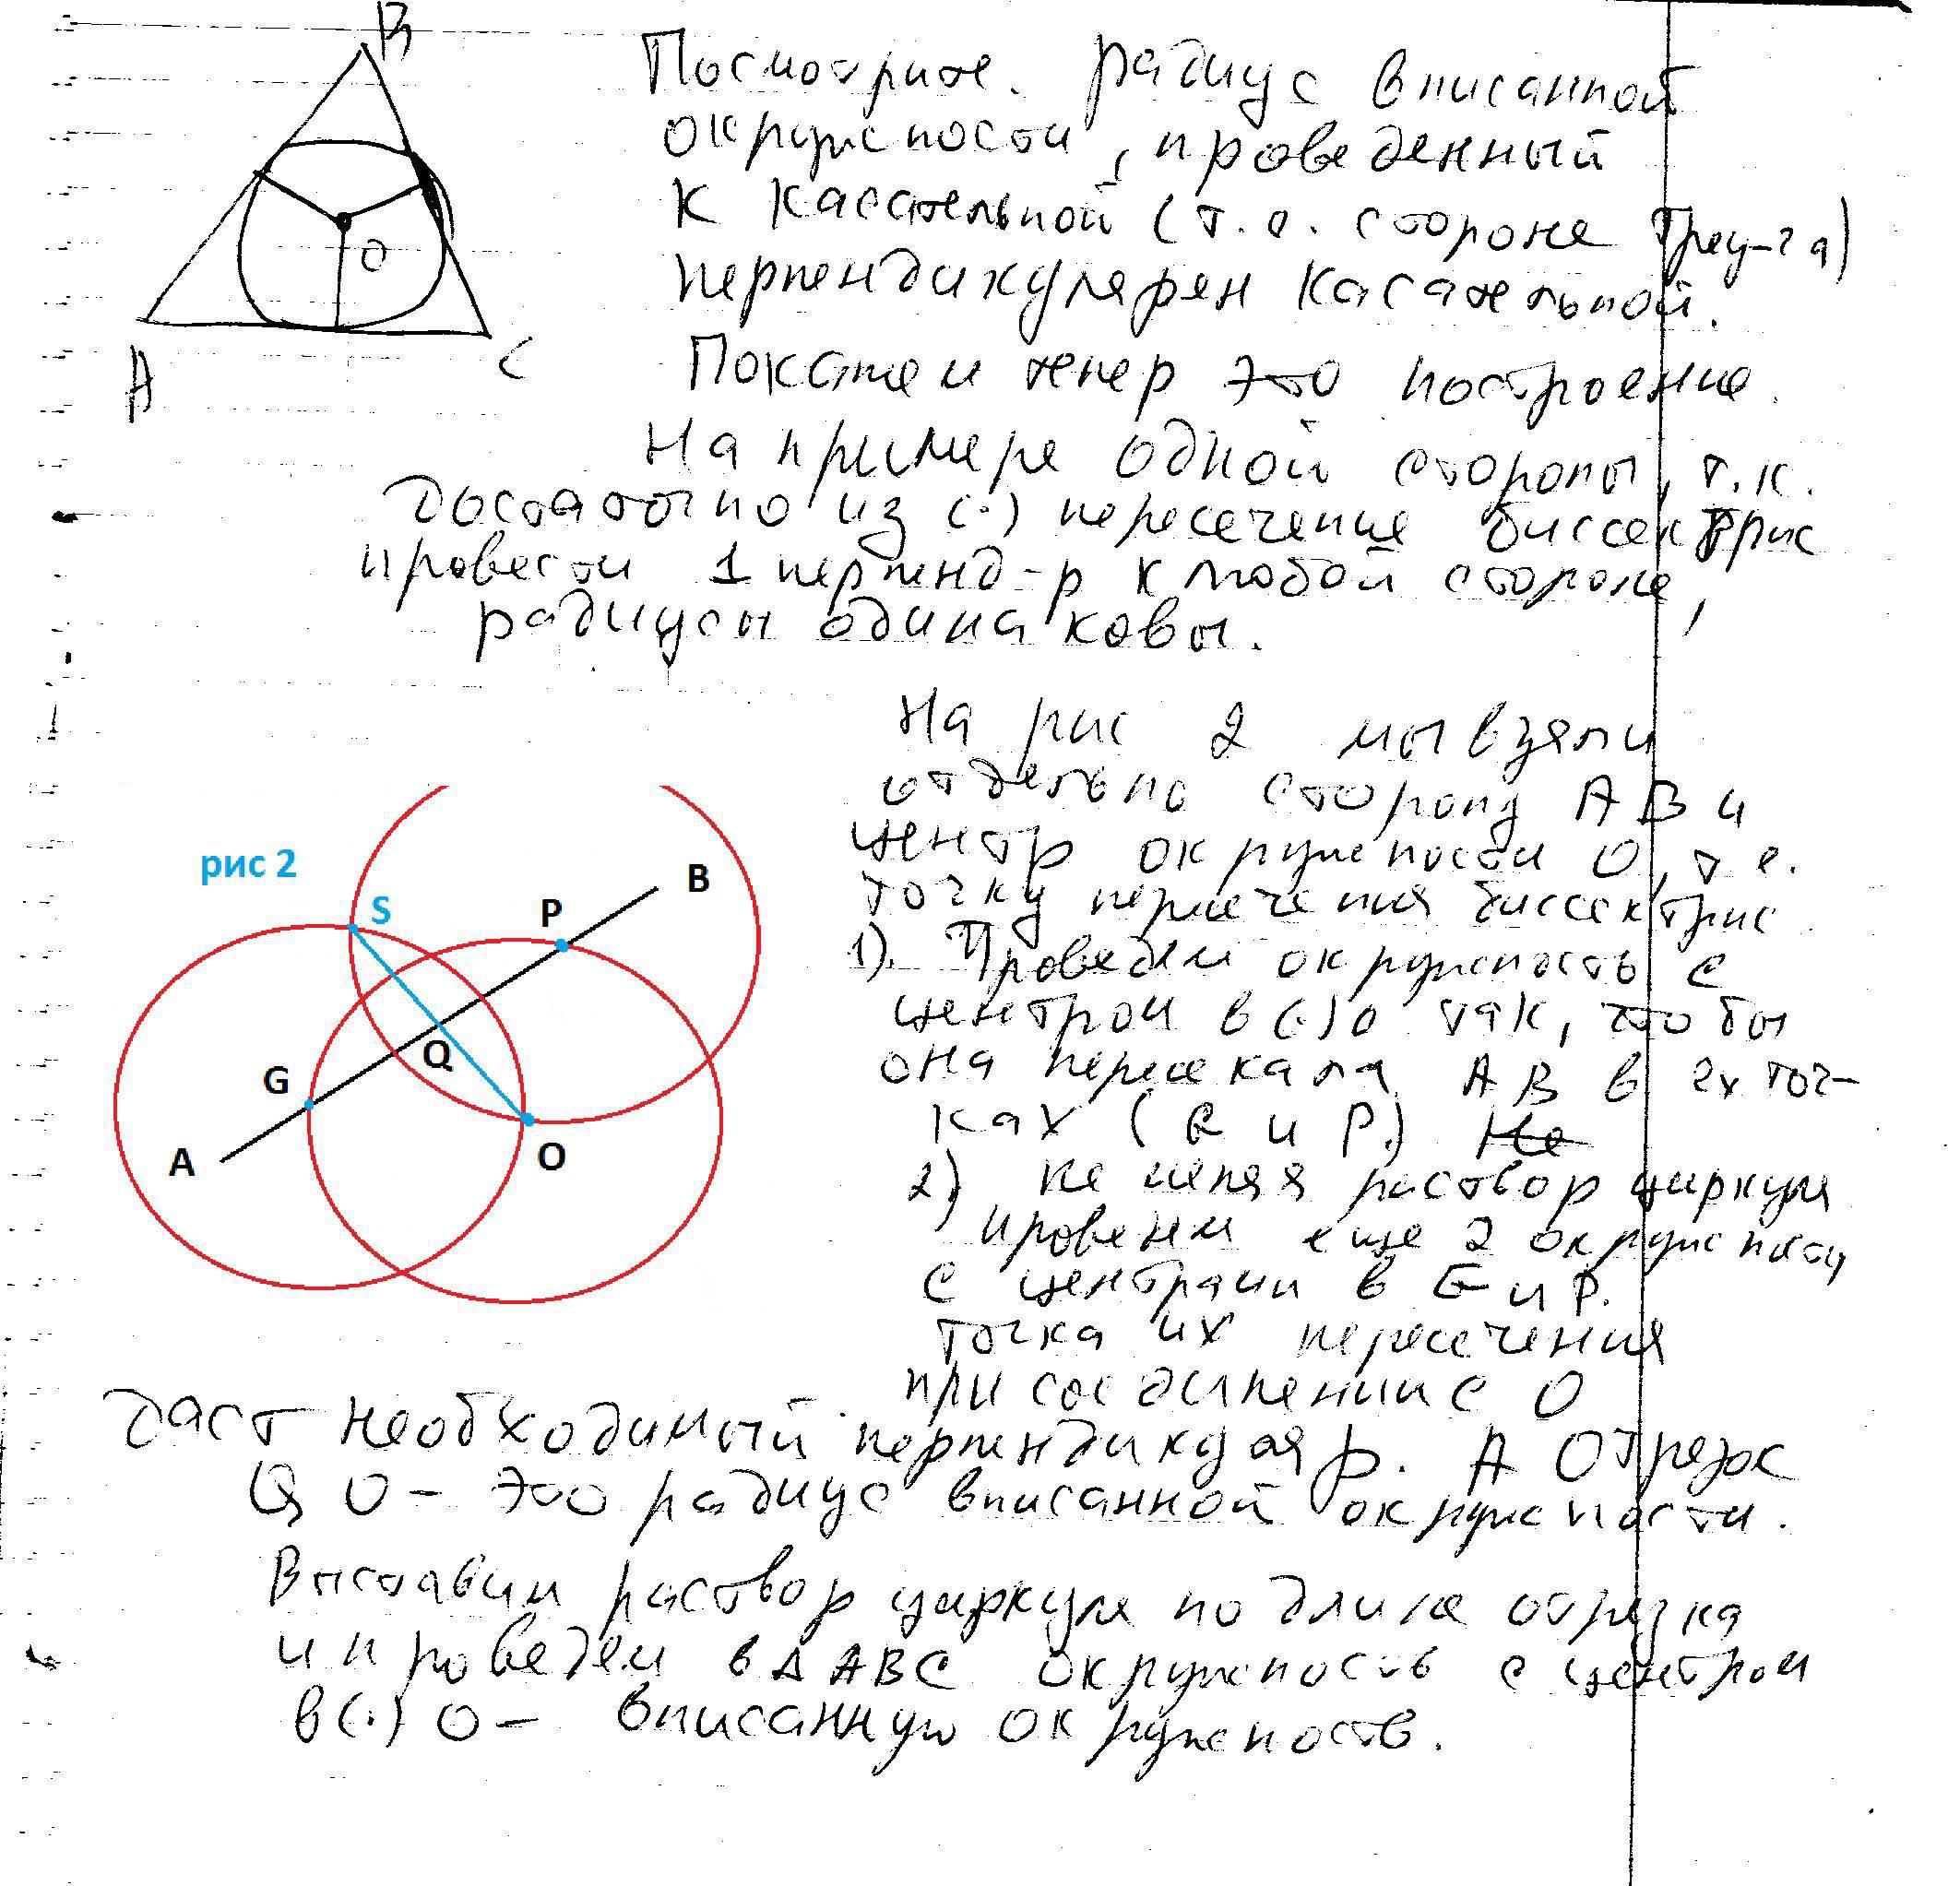 B
O
A
C
Посмотрите. радиус вписанной
окружности, проведенный
к касательной (т.е. стороне треу-га)
перпендикулярен касательной.
Покажем тепер это построение.
На примере одной стороны, т.к.
достаточно из (·) пересечение биссектрис
провести 1 перпенд-р к любой стороне,
радиусы одинаковы.
На рис 2 мы взяли
отдельно сторону AB и
центр окружности O, т.е.
точку пересечения биссектрис
1). Проведем окружность с
центром в (·) O так, чтобы
она пересекала AB в 2х точ-
ках (G и P.) Не
2) не меняя раствор циркуля
проведем еще 2 окружности
с центрами в G и P.
точка их пересечения
при соединении с O
даст необходимый перпендикуляр. А отрезок
QO - это радиус вписанной окружности.
Выставим раствор циркуля по длине отрезка
и проведем в Δ ABC окружность с центром
в (·) O - вписанную окружность.
рис 2
S
P
B
G
Q
A
O